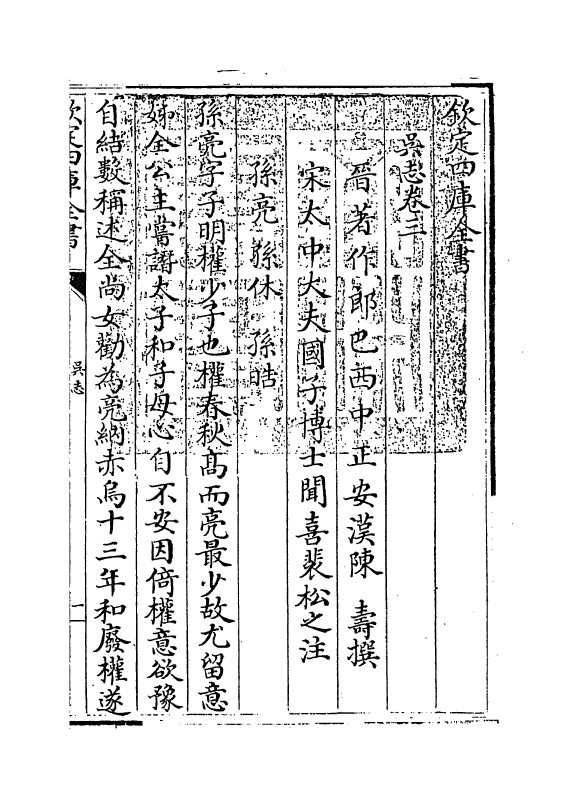 欽定四庫全書
吳志卷三
晉著作郎巴西中正安漢陳壽撰
宋太中大夫國子博士聞喜裴松之注
孫亮 孫休 孫皓
孫亮字子明權少子也權春秋高而亮最少故尤留意
姊全公主嘗譖太子和子母心自不安因倚權意欲豫
自結數稱述全尚女勸為亮納赤烏十三年和廢權遂
欽定四庫全書
吳志
一